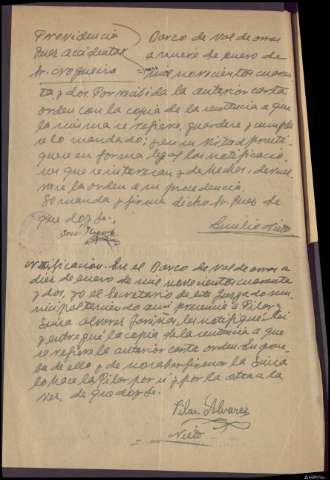 Providencia
Juez accidental
Sr. Nogueira
Barco de Valdeorras
a nueve de enero de
mil novecientos cuaren
ta y dos. Por recibida la anterior carta
orden con la copia de la sentencia a que
la misma se refiere, guardese y cumpla
se lo mandado; y en su vista practi
quese en forma legal las notificacio
nes que se interesan, y de hechas, devuel
vase la orden a su procedencia.
Lo manda y firma dicho Sr. Juez de
que doy fe.
Emilio Nieto
Notificación. En el Barco de Valdeorras a
diez de enero de mil novecientos cuarenta
y dos, yo el Secretario de este Juzgado mu
nicipal teniendo a mi presencia a Pilar y
Elvira Alvarez les notifiqué, leí
y entregué la copia de la sentencia a que
se refiere la anterior carta orden
de ella y de no saber firmar la Elvira
lo hace la Pilar por si y por la otra a la
vez, de que doy fe.
Pilar Alvarez
Nieto